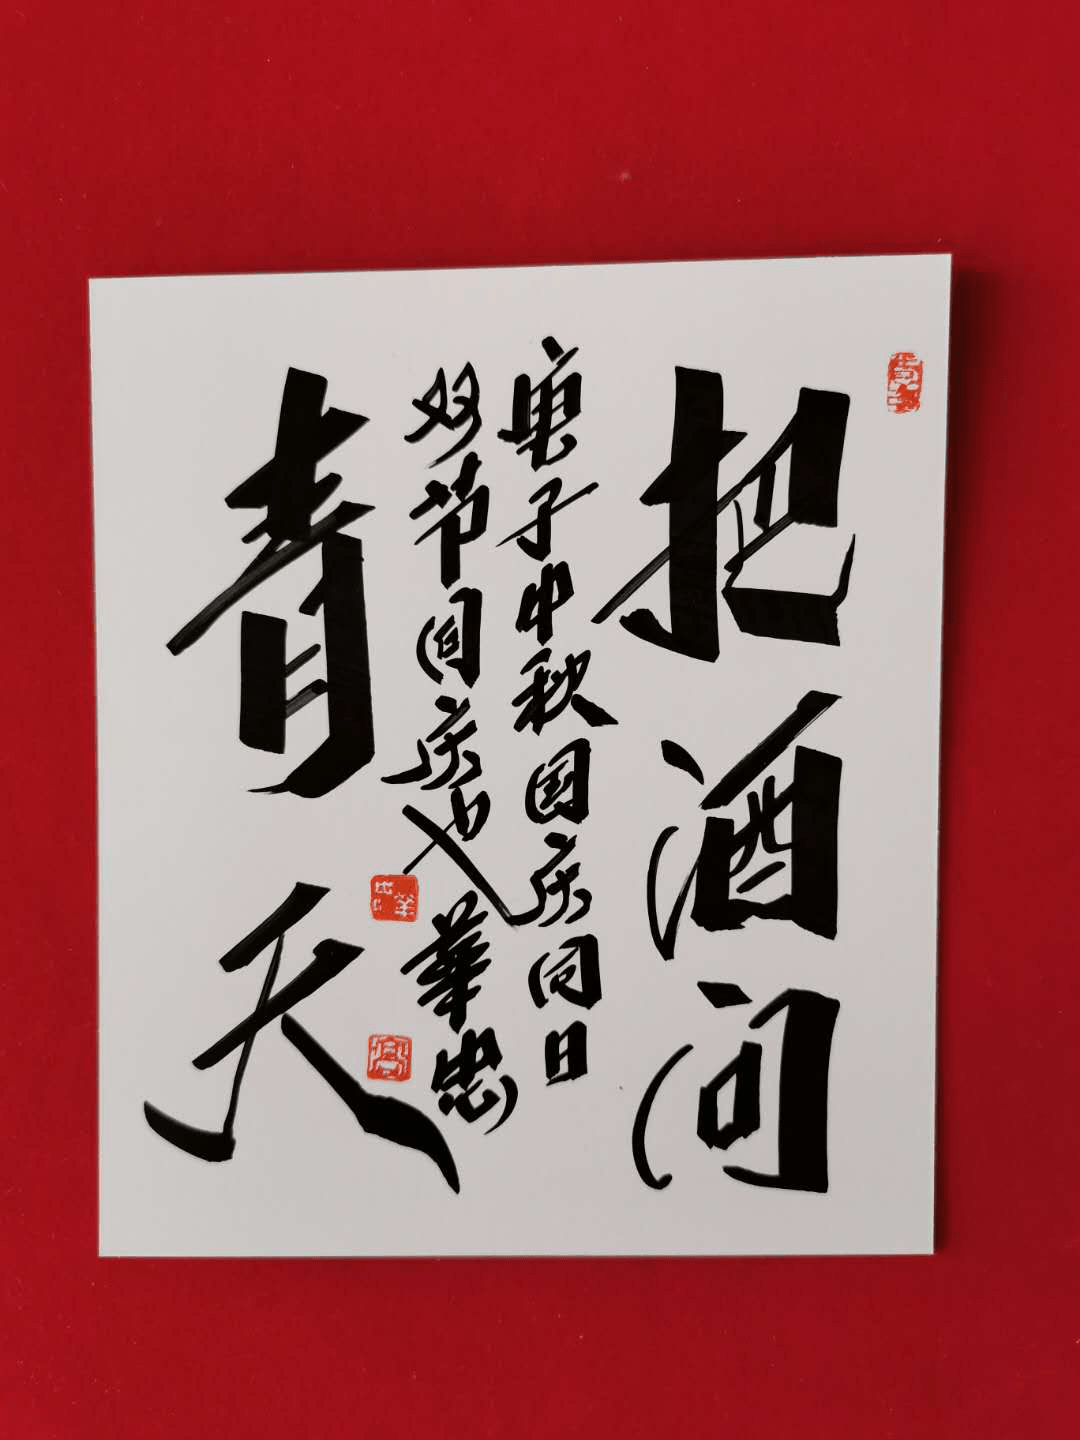 把酒问
青天
庚子中秋国庆同日
双节同庆也 華忠